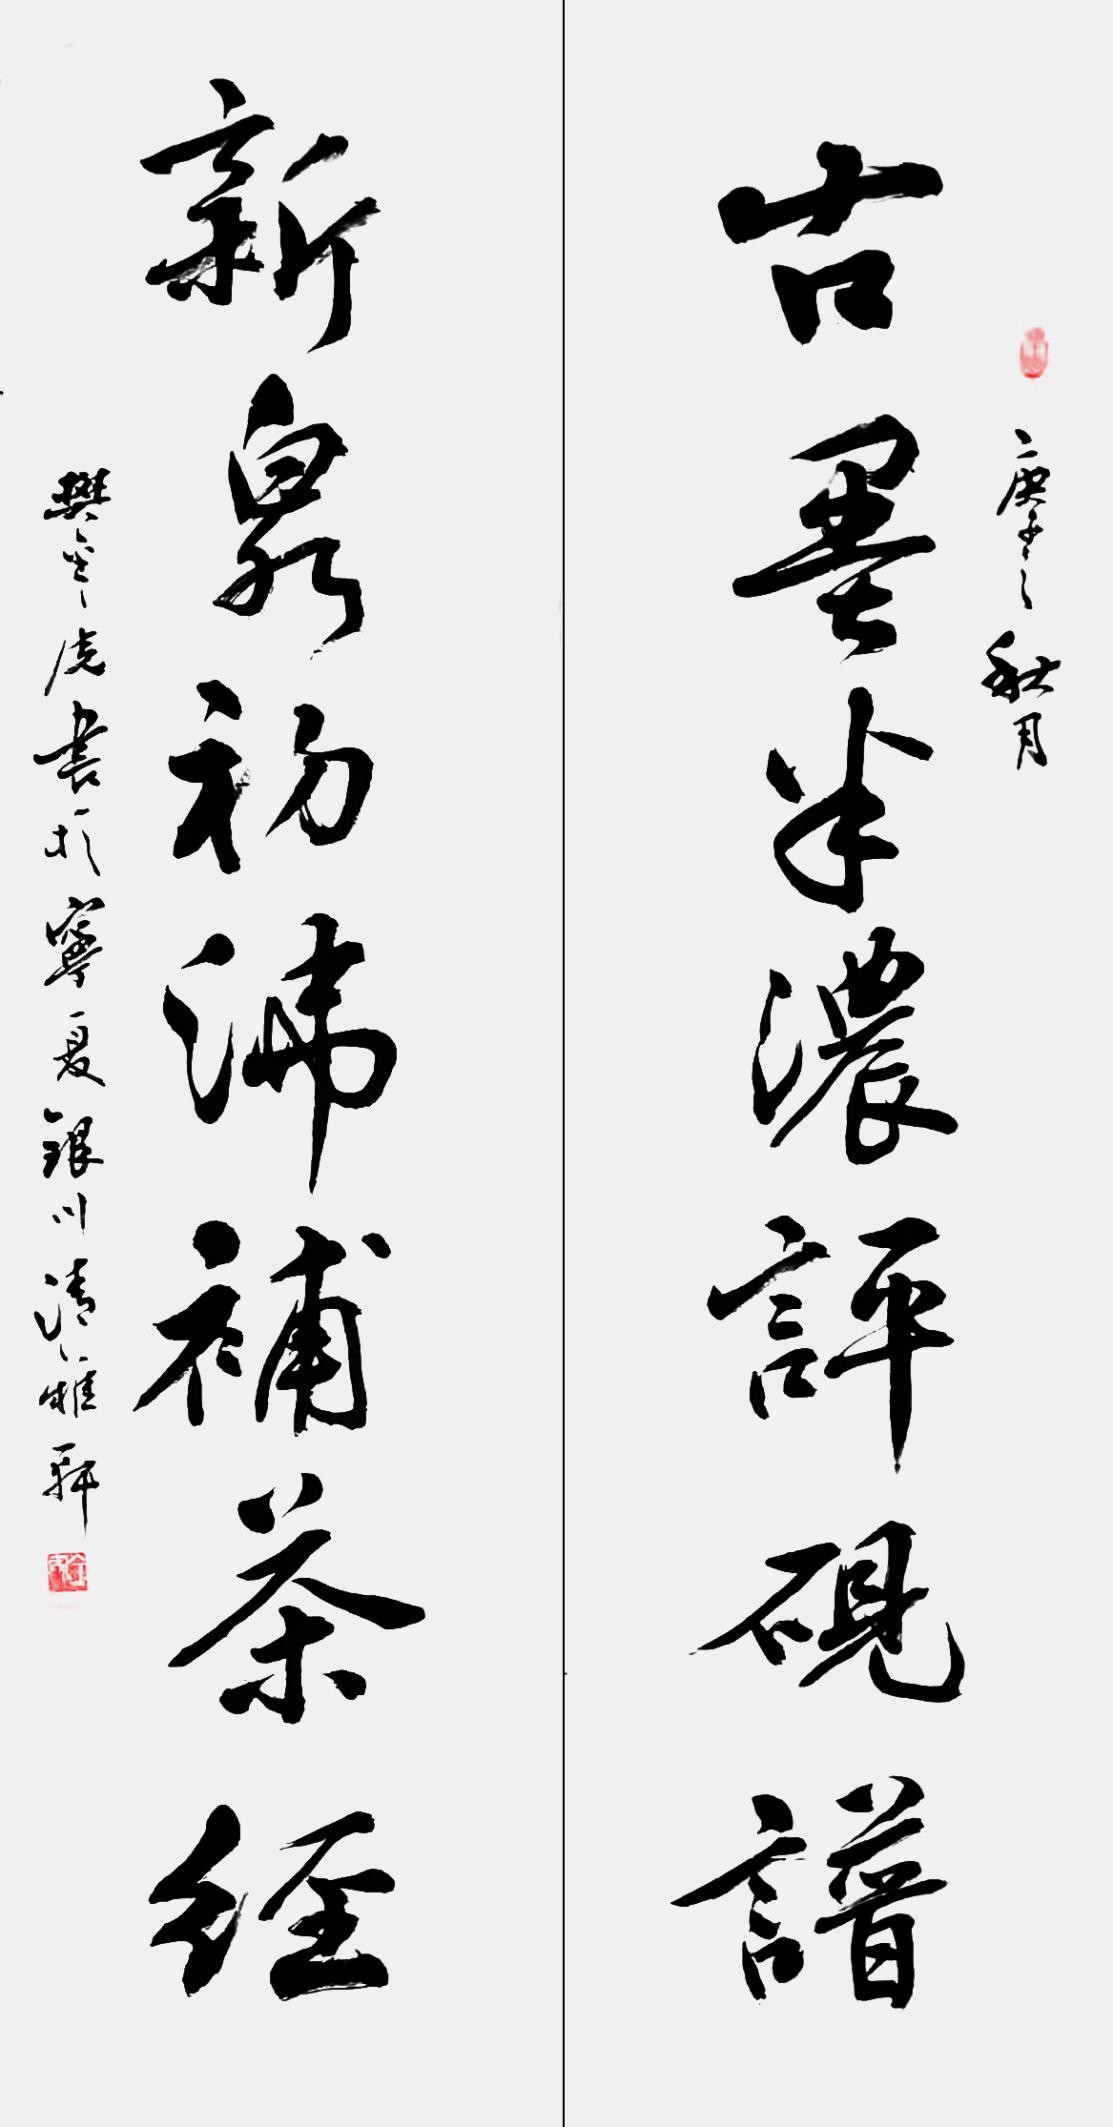 庚子之秋月
古墨半濃評硯譜
新泉初沸補茶经
樊金虎書於寧夏銀川清雅軒